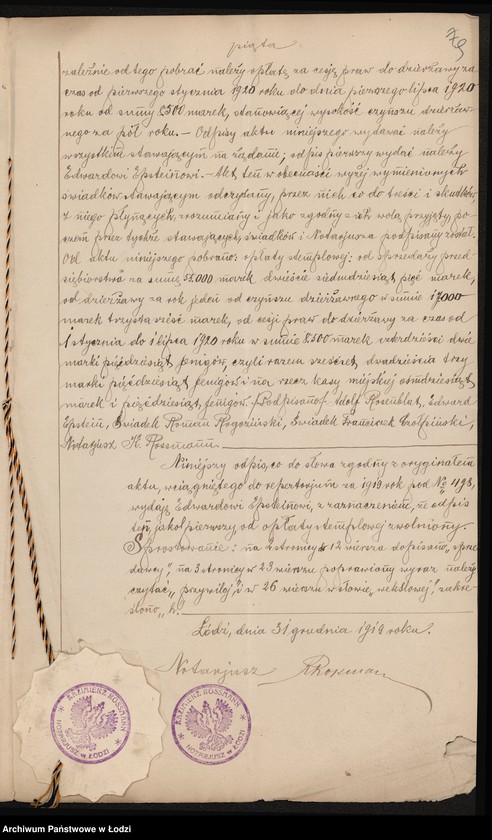 piąta
zależnie od tego pobrać należy opłatę za cesję praw do dzierżawy za
czas od pierwszego stycznia 1920 roku do dnia pierwszego lipca 1920
roku od sumy 8500 marek, stanowiącej wysokość czynszu dzierżaw-
nego za pół roku.— Odpisy aktu niniejszego wydawać należy
wszystkim stawającym na żądanie; odpis pierwszy wydać należy
Edwardowi Epsteinowi.— Akt ten w obecności wyżej wymienionych
świadków stawającym odczytany, przez nich co do treści i skutków,
z niego płynących, zrozumiany i jako zgodny z ich wolą przyjęty po-
czem przez tychże stawających, świadków i Notarjusza podpisany został.
Od aktu niniejszego pobrano: opłaty stemplowej: od sprzedaży przed-
siębiorstwa za sumę 55.000 marek dwieście siedmdziesiąt pięć marek,
od dzierżawy za rok jeden od czynszu dzierżawnego w sumie 17000
marek trzysta sześć marek, od cesji praw do dzierżawy za czas od
1 stycznia do 1 lipca 1920 roku w sumie 8500 marek czterdzieści dwie
marki pięćdziesiąt fenigów, czyli razem sześćset dwadzieścia trzy
marki pięćdziesiąt fenigów i na rzecz kasy miejskiej ośmdziesiąt
marek i pięćdziesiąt fenigów. /Podpisano/ Adolf Rosenblat, Edward
Epstein, Świadek Roman Rogoziński, Świadek Franciszek
Notarjusz K. Rossmann.
Niniejszy odpis, co do słowa zgodny z oryginałem
aktu, wciągniętego do repertorjum za 1919 rok pod № 498,
wydaję Edwardowi Epsteinowi, z zaznaczeniem, że odpis
ten, jako pierwszy od opłaty stemplowej zwolniony.
Sprostowanie: na 2 stronicy w 12 wierszu dopisano „sprze-
dawcy", na 3 stronicy w 23 wierszu poprawiony wyraz należy
czytać „przywilej" i w 26 wierszu w słowie „wekslowej" zakre-
ślono „h".
Łódź, dnia 31 grudnia 1919 roku.
Notarjusz KRossman
KAZIMIERZ ROSSMANN
NOTARJUSZ w ŁODZI
KAZIMIERZ ROSSMANN
NOTARJUSZ w ŁODZI
Archiwum Państwowe w Łodzi